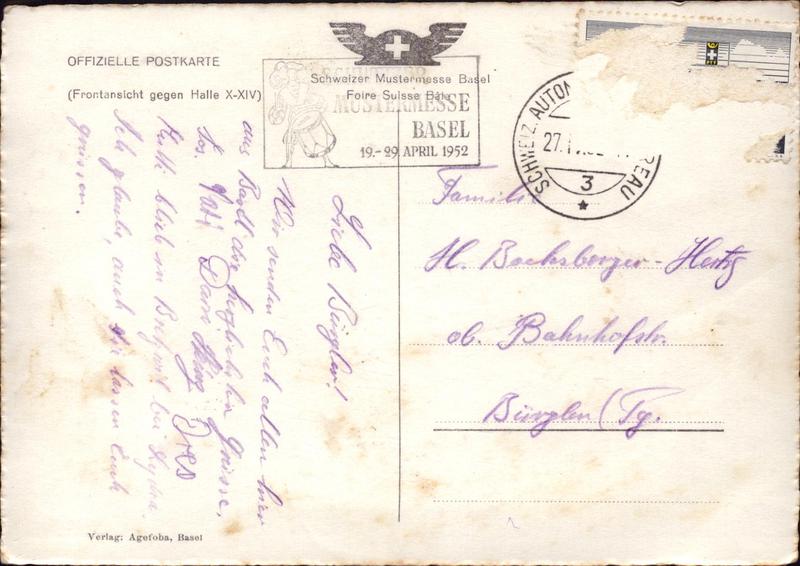 OFFIZIELLE POSTKARTE
(Frontansicht gegen Halle X-XIV)
Schweizer Mustermesse Basel
Foire Suisse Bâle
SCHWEIZER
MUSTERMESSE
BASEL
19.-29. APRIL 1952
SCHWEIZ. AUTOM REAU
27. I
3
Liebe Bürgler!
Wir senden Euch allen hier
aus Basel die herzlichsten Grüsse,
Vati
Ruth blieb in bei
Ich glaube, auch sie lassen Euch
grüssen.
Familie
H. Bachsberger-Hertig
ob. Bahnhofstr.
Bürglen/Tg.
Verlag: Agefoba, Basel